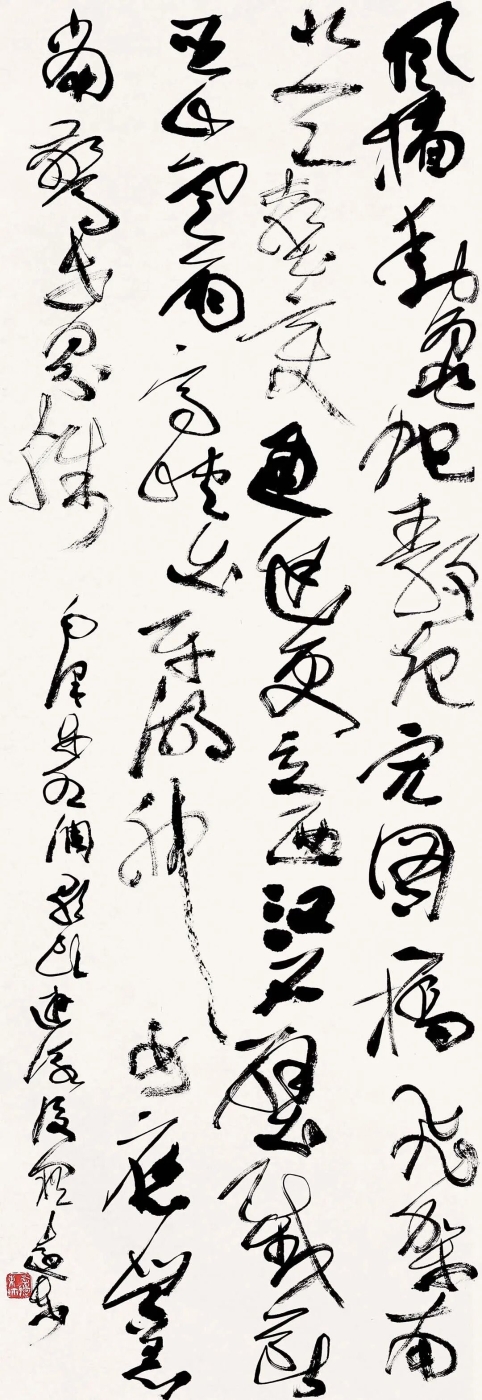 风樯動龜蛇靜起宏圖一橋飛架南
北天塹變通途更立西江石壁截斷
巫山雲雨高峽出平湖神女應無恙
當驚世界殊
毛澤東水調歌頭游泳後